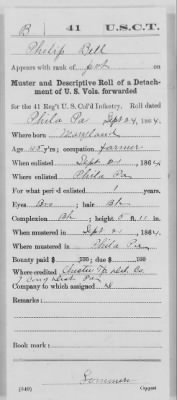 B 41 U.S.C.T.
Philip Bell
Appears with rank of Pvt on
Muster and Descriptive Roll of a Detach-
ment of U. S. Vols. forwarded
for the 41 Reg't U. S. Col'd Infantry. Roll dated
Phila Pa Sept 24, 1864.
Where born Maryland
Age 45 y'rs; occupation farmer
When enlisted Sept. 21, 1864
Where enlisted Phila Pa
For what period enlisted 1 years.
Eyes Bro; hair Bk
Complexion Bk; height 5 ft. 11 in.
When mustered in Sept 21, 1864.
Where mustered in Phila Pa
Bounty paid $ 100; due $ 100
Where credited
Company to which assigned
Remarks:
Book mark:
(349) Copyist